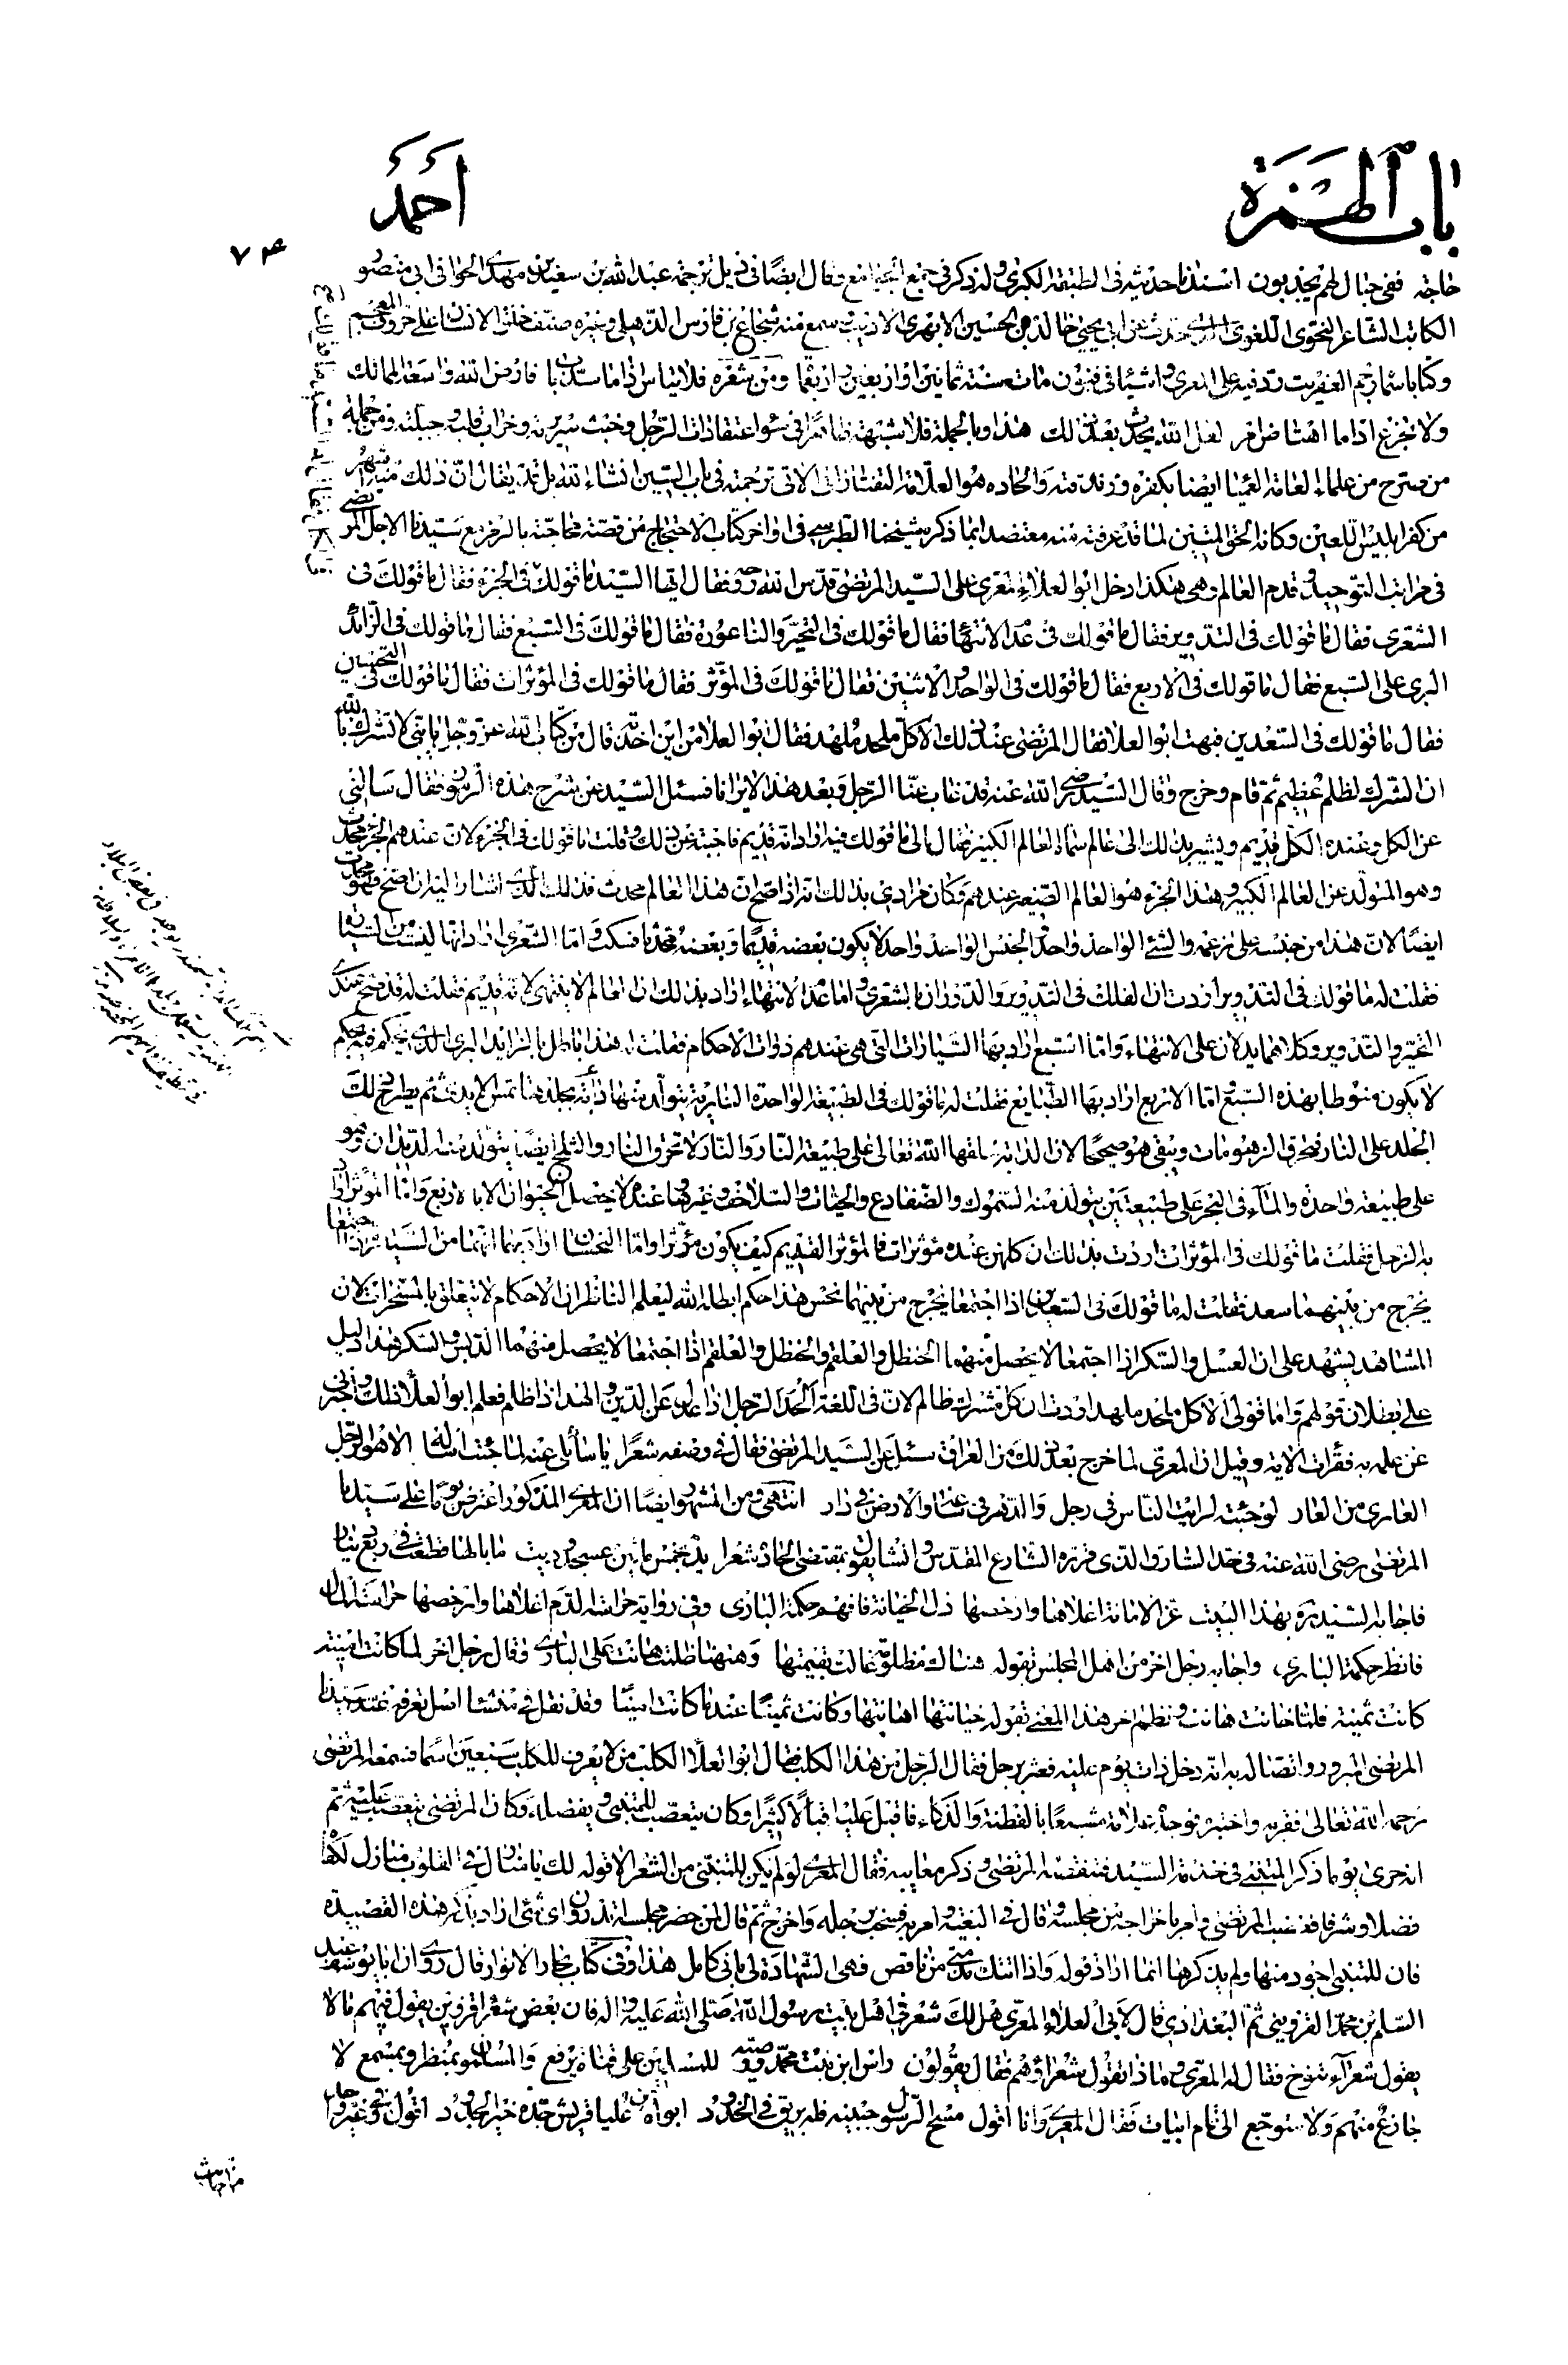 باب الهمزة
أحمد
٧٤
حاجة ففي حبالهم يجذبون اسندنا حديثه في الطبقة الكبرى ولنذكر في جميع المجامع وقال ايضا في ذيل ترجمة عبد الله بن سعيد بن مهدي الخوافي ابي منصور
الكاتب الشاعر النحوي اللغوي حدث عن ابي يحيى خالد بن الحسين الابهري الاديب سمع منه شجاع بن فارس الذهلي وغيره صنف خلق الانسان على حروف المعجم
وكتابا سماه رجم العفريت رد فيه على المعري واشياء في فنون مات سنة ثمانين واربعين واربعمأة ومن شعره فلا تيأس اذا ما سد باب فارض الله واسعة المسالك
ولا تجزع اذا ما اعتاص امر لعل الله يحدث بعد ذلك هذا وبالجملة فلا شبهة ظاهرا في سوء اعتقادات الرجل وخبث سريرته وخراب قلبه وجبلته ومن جملة
من صرح من علماء العامة العمياء ايضا بكفره وزندقته والحاده هو العلامة التفتازاني الاتي ترجمته في باب السين انشاء الله بل قد يقال ان ذلك منه اشهر
من كفر ابليس اللعين وكانه الحق المتين لما قد عرفته منه معتضدا بما ذكره شيخنا الطبرسي في اواخر كتاب الاحتجاج من قصة محاجته بالرمز مع سيدنا الاجل المرتضى
في مراتب التوحيد وقدم العالم وهي هكذا دخل ابو العلاء المعري على السيد المرتضى قدس الله روحه فقال ايها السيد ما قولك في الكل فقال السيد ما قولك في الجزء فقال ما قولك في
الشعرى فقال ما قولك في التدوير فقال ما قولك في عدم الانتهاء فقال ما قولك في التحيز والناعورة فقال ما قولك في السبع فقال ما قولك في الزائد
البري على السبع فقال ما قولك في الاربع فقال ما قولك في الواحد والاثنين فقال ما قولك في المؤثر فقال ما قولك في المؤثرات فقال ما قولك في النحسين
فقال ما قولك في السعدين فبهت ابو العلا فقال المرتضى عند ذلك الا كل ملحد ملهد فقال ابو العلا من اين اخذته قال من كتاب الله عز وجل يا بني لا تشرك بالله
ان الشرك لظلم عظيم ثم قام وخرج وقال السيد رضي الله عنه قد غاب عنا الرجل وبعد هذا لا يرانا فسئل السيد عن شرح هذه الرموز فقال سالني
عن الكل وعنده الكل قديم ويشير بذلك الى عالم سماه العالم الكبير فقال لي ما قولك فيه اراد انه قديم فاجبته عن ذلك وقلت ما قولك في الجزء لان عندهم الجزء محدث
وهو المتولد عن العالم الكبير وهذا الجزء هو العالم الصغير عندهم وكان مرادي بذلك انه اذا صح ان هذا العالم محدث فذلك الذي اشار اليه ان صح فهو محدث
ايضا لان هذا من جنسه على زعمه والشئ الواحد والجنس الواحد لا يكون بعضه قديما وبعضه محدثا فسكت واما الشعرى اراد انها ليست من السيارة
فقلت له ما قولك في التدوير اردت ان الفلك في التدوير والدوران فالشعرى واما عدم الانتهاء اراد بذلك ان العالم لا ينتهي لانه قديم فقلت له قد صح عندي
التحيز والتدوير وكلاهما يدلان على الانتهاء واما السبع اراد بها السيارات التي هي عندهم ذوات الاحكام فقلت له هذا باطل بالزايد البري الذي يحكم فيه بحكم
لا يكون منوطا بهذه السبع اما الاربع اراد بها الطبايع فقلت له ما قولك في الطبيعة الواحدة النارية يتولد منها دابة بجلدها تمس الايدي ثم يطرح ذلك
الجلد على النار فتحرق الزهومات ويبقى هو صحيحا لان الدابة خلقها الله تعالى على طبيعة النار والنار لا تحرق النار والثلج ايضا يتولد منه الديدان وهو
على طبيعة واحدة والماء في البحر على طبيعتين يتولد منه السموك والضفادع والحيات والسلاحف وغيرها وعنده لا يحصل الحيوان الا بالاربع واما المؤثر اراد
به الزحل فقلت ما قولك في المؤثرات اردت بذلك ان كلهن عنده مؤثرات فالمؤثر القديم كيف يكون مؤثرا واما النحسان اراد بهما انهما من السيارات اذا اجتمعا
يخرج من بينهما سعد فقلت له ما قولك في السعدين اذا اجتمعا يخرج من بينهما نحس هذا حكم ابطله الله ليعلم الناظر ان الاحكام لا تتعلق بالمسخرات لان
المشاهد يشهد على ان العسل والسكر اذا اجتمعا لا يحصل منهما الحنظل والعلقم والحنظل والعلقم اذا اجتمعا لا يحصل منهما الدبس والسكر هذا دليل
على بطلان قولهم واما قولي الا كل ملحد ملهد اردت ان كل مشرك ظالم لان في اللغة الحد الرجل اذا عدل عن الدين والهد اذا ظلم فعلم ابو العلا ذلك واخبرني
عن علمه به فقرأت الاية وقيل ان المعري لما خرج بعد ذلك من العراق سئل عن السيد المرتضى فقال في وصفه شعرا يا سائلي عنه لما جئت اساله الا هو الرجل
العاري من العار لو جئته لرايت الناس في رجل والدهر في ساعة والارض في دار انتهى ومن المشهور ايضا ان المعري المذكور اعترض يوما على سيدنا
المرتضى رضي الله عنه في حد السارق الذي قرره الشارع المقدس بمقتضى الحاده شعرا يد بخمس مائين عسجد وديت ما بالها قطعت في ربع دينار
فاجابه السيد ره بهذا البيت عز الامانة اغلاها وارخصها ذل الخيانة فافهم حكمة الباري وفي رواية حراسة الدم اغلاها وارخصها حراسة المال
فانظر حكمة الباري، واجابه رجل اخر من اهل المجلس بقوله هناك مظلومة غالت بقيمتها وههنا ظلمت هانت على الباري وقال رجل اخر لما كانت امينة
كانت ثمينة فلما خانت هانت ونظم اخر هذا المعنى بقوله خيانتها اهانتها وكانت ثمينا عندما كانت امينا وقد نقل في منشأ اصل تعرفه عند سيدنا
المرتضى المبرور واتصاله به انه دخل ذات يوم عليه فعثر برجل فقال الرجل من هذا الكلب فقال ابو العلا الكلب من لا يعرف للكلب سبعين اسما فسمعه المرتضى
رحمه الله تعالى فقربه واختبره فوجده علامة مشبعا بالفطنة والذكاء فاقبل عليه اقبالا كثيرا وكان يتعصب للمتنبي ويفضله وكان المرتضى يتعصب عليه ثم
انه جرى يوما ذكر المتنبي في خدمة السيد فتنقصه المرتضى وذكر معايبه فقال المعري لو لم يكن للمتنبي من الشعر الا قوله لك يا منازل في القلوب منازل لكفاه
فضلا وشرفا فغضب المرتضى وامر باخراجه من مجلسه وقال في البغية وامر به فسحب برجله واخرج ثم قال لمن حضر مجلسه اتدرون اي شئ اراد بذكر هذه القصيدة
فان للمتنبي اجود منها ولم يذكرها انما اراد قوله واذا اتتك مذمتي من ناقص فهي الشهادة لي باني كامل هذا وفي كتاب بحار الانوار قال روى ان ابا يوسف عبد
السلم بن محمد القزويني ثم البغدادي قال لابي العلاء المعري هل لك شعر في اهل بيت رسول الله صلى الله عليه واله فان بعض شعراء قزوين يقول فيهم ما لا
يقول شعراء تنوخ فقال له المعري وماذا تقول شعراؤهم فقال يقولون راس ابن بنت محمد ووصيه للمسلمين على قناة يرفع والمسلمون بمنظر وبمسمع لا
جازع منهم ولا متوجع الى تمام ابيات فقال المعري وانا اقول مسح الرسول جبينه فله بريق في الخدود ابواه من عليا قريش جده خير الجدود اقول وفي غير واحد